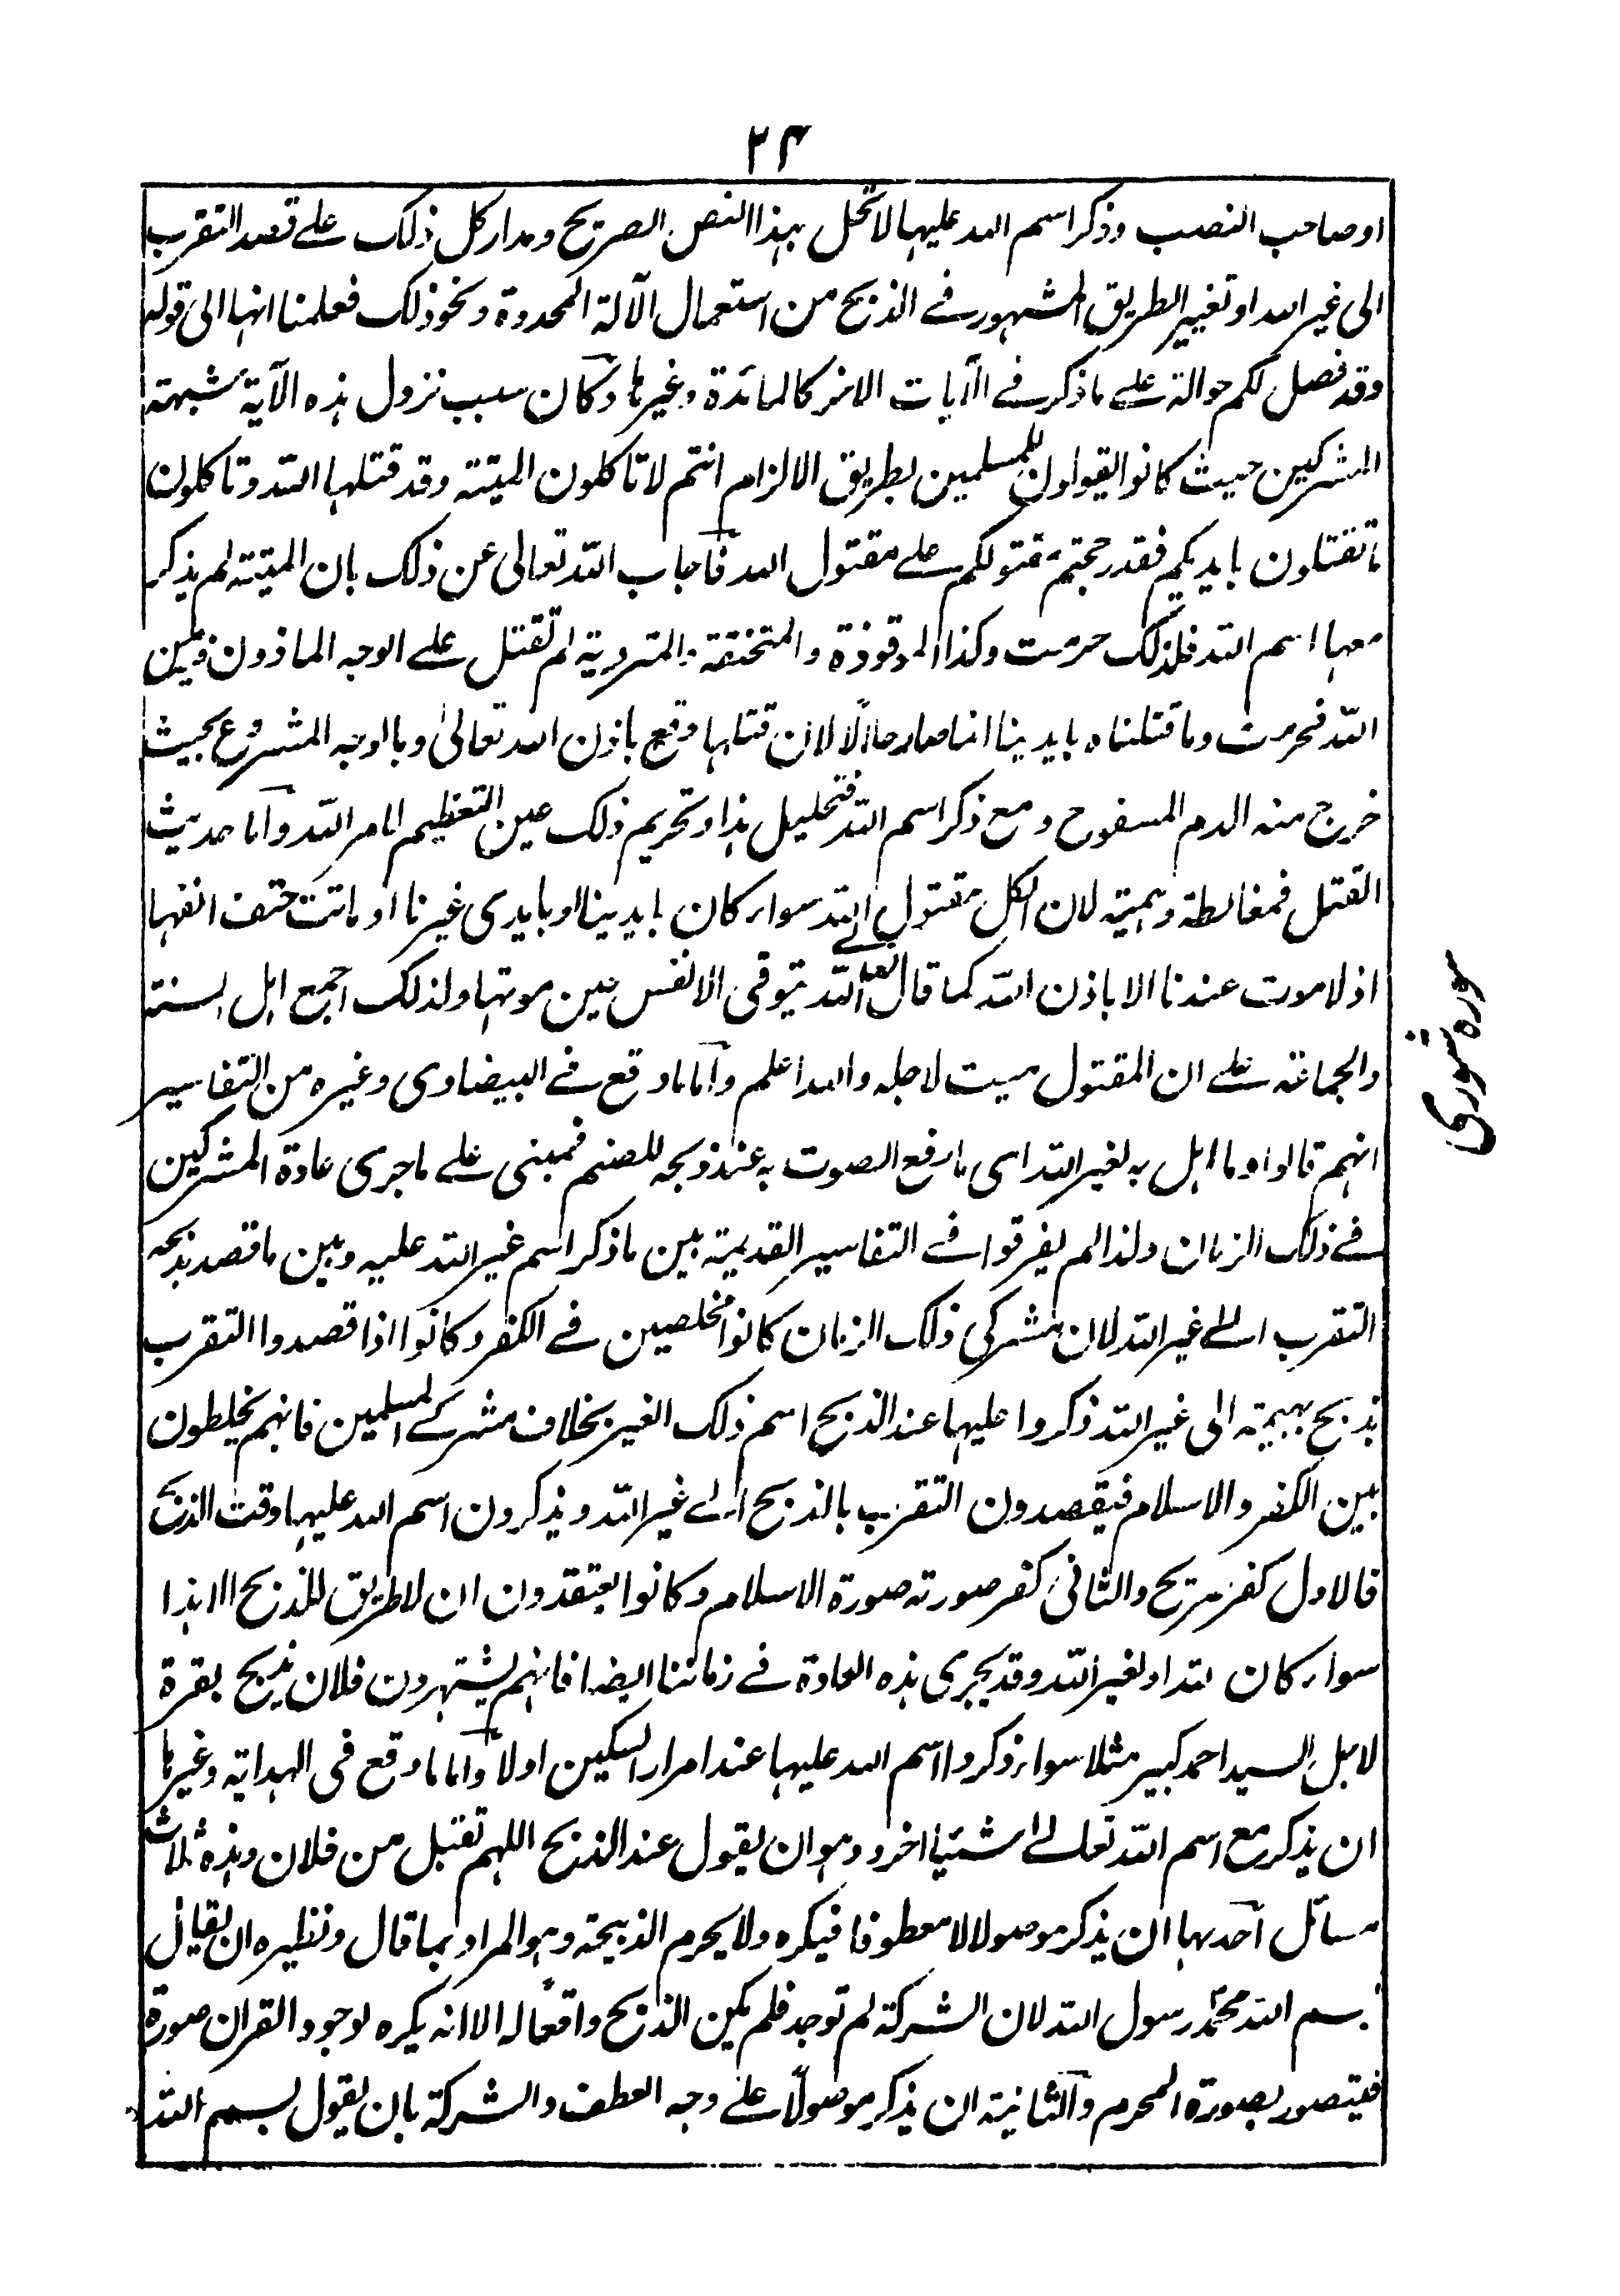 ٢٤
او صاحب النصب وذكر اسم الله عليها لا تحل بهذا النص الصريح ومدار كل ذلك على قصد التقرب
الى غير الله او تغيير الطريق المشهور في الذبح من استعمال الآلة المحدودة ونحو ذلك فعلمنا انها الى قوله
وقد فصل لكم حوالة على ما ذكر في الآيات الاخر كالمائدة وغيرها وكان سبب نزول هذه الآية شبهة
المشركين حيث كانوا يقولون للمسلمين بطريق الالزام انتم لا تاكلون الميتة وقد قتلها الله وتاكلون
ما تقتلون بايديكم فقد رجحتم مقتولكم على مقتول الله فاجاب الله تعالى عن ذلك بان الميتة لم يذكر
معها اسم الله فلذلك حرمت وكذا الموقوذة والمتخنقة والمتردية لم تقتل على الوجه الماذون فيه من
الله فحرمت وما قتلناه بايدينا انما صار حلالا لان قتلها وقع باذن الله تعالى وبالوجه المشروع بحيث
خرج منه الدم المسفوح ومع ذكر اسم الله فتحليل هذا وتحريم ذلك عين التعظيم لامر الله واما حديث
القتل فمغالطة وهمية لان الكل مقتول الله سواء كان بايدينا او بايدى غيرنا او ماتت حتف انفها
اذ لا موت عندنا الا باذن الله كما قال الله تعالى الله يتوفى الانفس حين موتها ولذلك اجمع اهل السنة
والجماعة على ان المقتول ميت لاجله والله اعلم واما ما وقع في البيضاوى وغيره من التفاسير
انهم قالوا وما اهل به لغير الله اى ما رفع الصوت به عند ذبحه للصنم فمبنى على ما جرى عادة المشركين
في ذلك الزمان ولذا لم يفرقوا في التفاسير القديمة بين ما ذكر اسم غير الله عليه وبين ما قصد بذبحه
التقرب الى غير الله لان مشركى ذلك الزمان كانوا مخلصين في الكفر وكانوا اذا قصدوا التقرب
بذبح بهيمة الى غير الله ذكروا عليها عند الذبح اسم ذلك الغير بخلاف مشركى المسلمين فانهم يخلطون
بين الكفر والاسلام فيقصدون التقرب بالذبح الى غير الله ويذكرون اسم الله عليها وقت الذبح
فالاول كفر صريح والثانى كفر صورته صورة الاسلام وكانوا يعتقدون ان لا طريق للذبح الا هذا
سواء كان لله او لغير الله وقد يجرى هذه العادة في زماننا ايضا فانهم يشتهرون فلان يذبح بقرة
لاجل السيد احمد كبير مثلا سواء ذكروا اسم الله عليها عند امرار السكين اولا واما ما وقع فى الهداية وغيرها
ان يذكر مع اسم الله تعالى شيئا اخر وهو ان يقول عند الذبح اللهم تقبل من فلان وهذه ثلاث
مسائل احدها ان يذكر موصولا لا معطوفا فيكره ولا يحرم الذبيحة وهو المراد بما قال ونظيره ان يقال
بسم الله محمد رسول الله لان الشركة لم توجد فلم يكن الذبح واقعا له الا انه يكره لوجود القران صورة
فيتصور بصورة المحرم والثانية ان يذكر موصولا على وجه العطف والشركة بان يقول بسم الله
سوره شورى